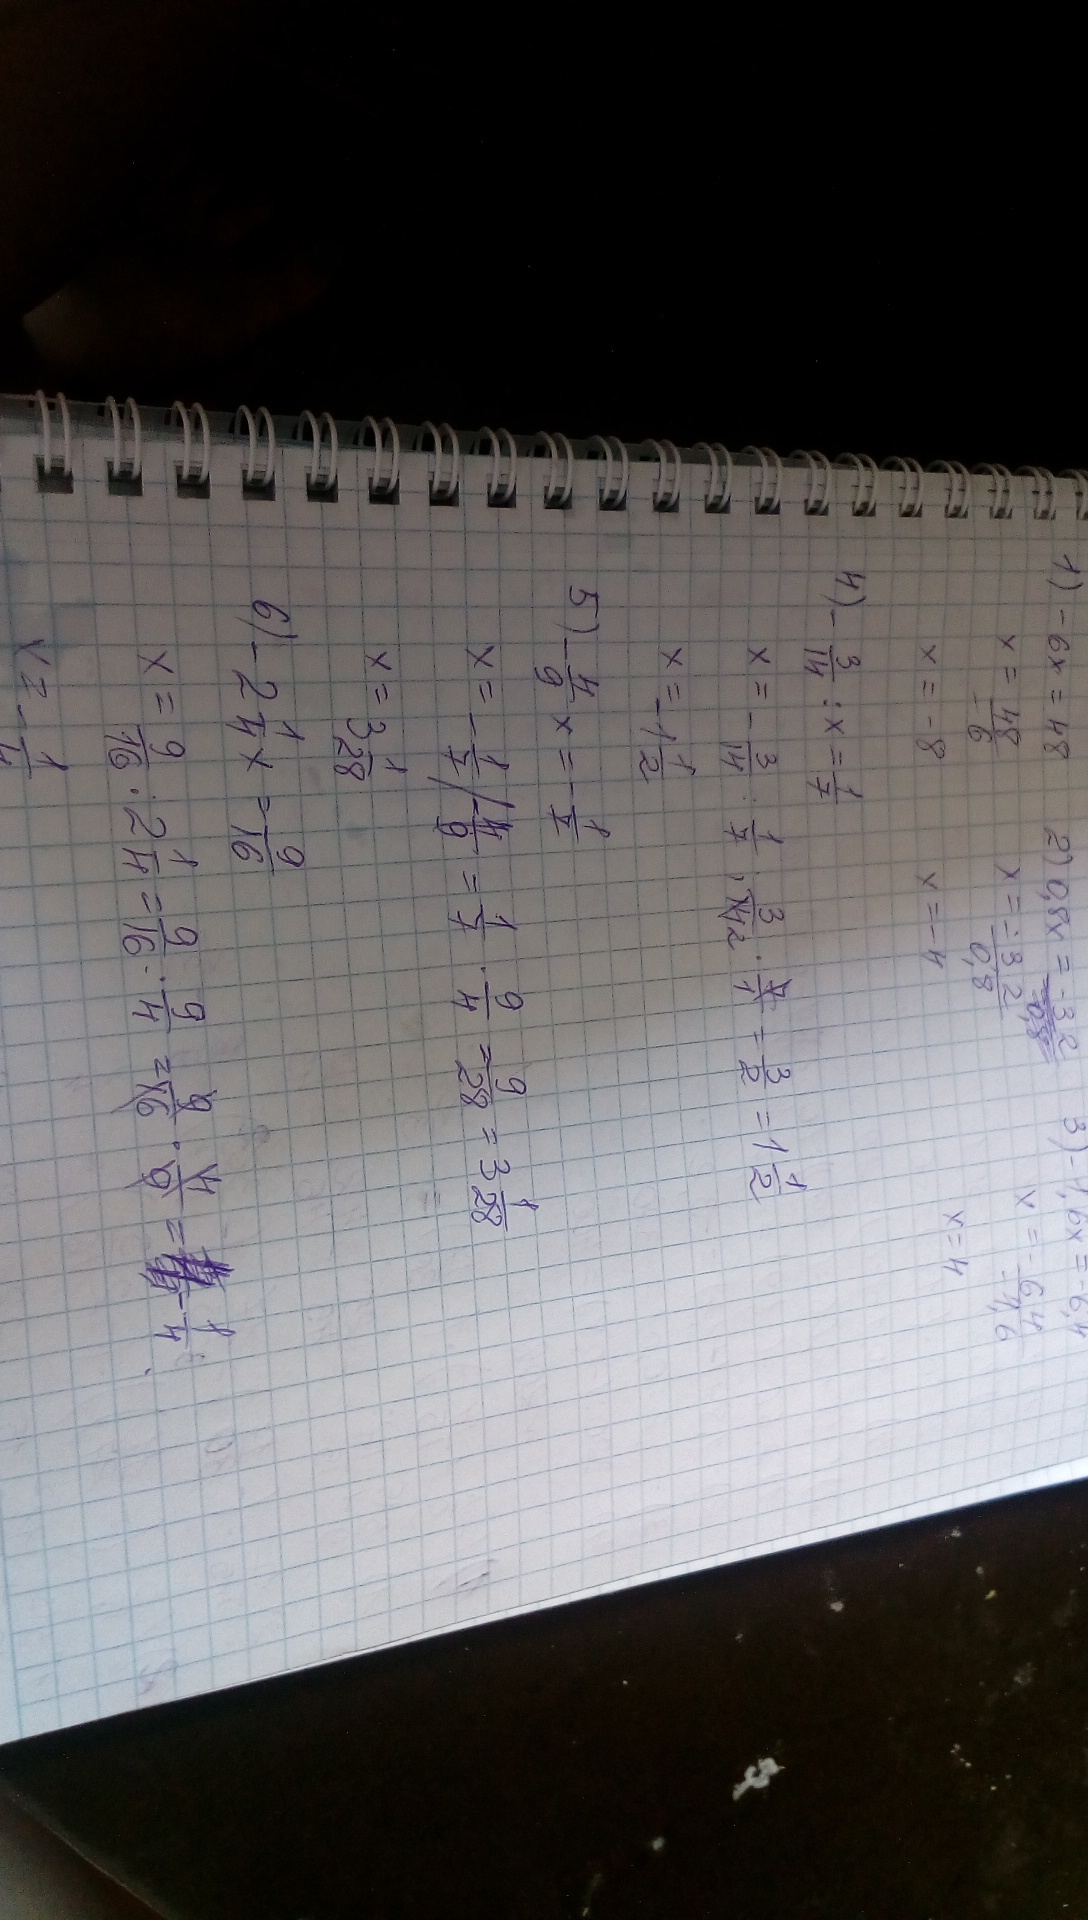 1) -6x = 48 2) 0,8x = -3,2 3) -1,6x = 6,4
x = 48/-6 x = -3,2/0,8 x = -6,4/-1,6
x = -8 x = -4 x = 4
4) -3/14 : x = 1/7
x = -3/14 : 1/7 ; 3/14 2 · 7/1 = 3/2 = 1 1/2
x = -1 1/2
5) -4/9 x = -1/7
x = -1/7 / 4/9 = 1/7 · 9/4 = 9/28 = 3 1/28
x = 3 1/28
6) -2 1/4 x = 9/16
x = 9/16 : 2 1/4 = 9/16 : 9/4 = 9/16 · 4/9 = -1/4
x = -1/4